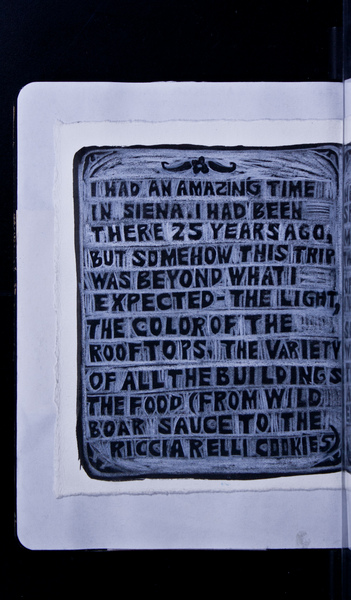 I HAD AN AMAZING TIME
IN SIENA. I HAD BEEN
THERE 25 YEARS AGO,
BUT SOMEHOW THIS TRIP
WAS BEYOND WHAT I
EXPECTED - THE LIGHT,
THE COLOR OF THE
ROOFTOPS, THE VARIETY
OF ALL THE BUILDINGS
THE FOOD (FROM WILD
BOAR SAUCE TO THE
RICCIARELLI COOKIES)